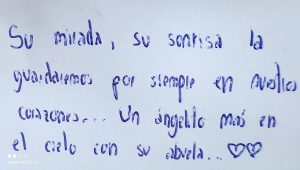 Su mirada, su sonrisa la
guardaremos por siempre en nuestros
corazones... Un ángelito más en
el cielo con su abuela... ♡♡